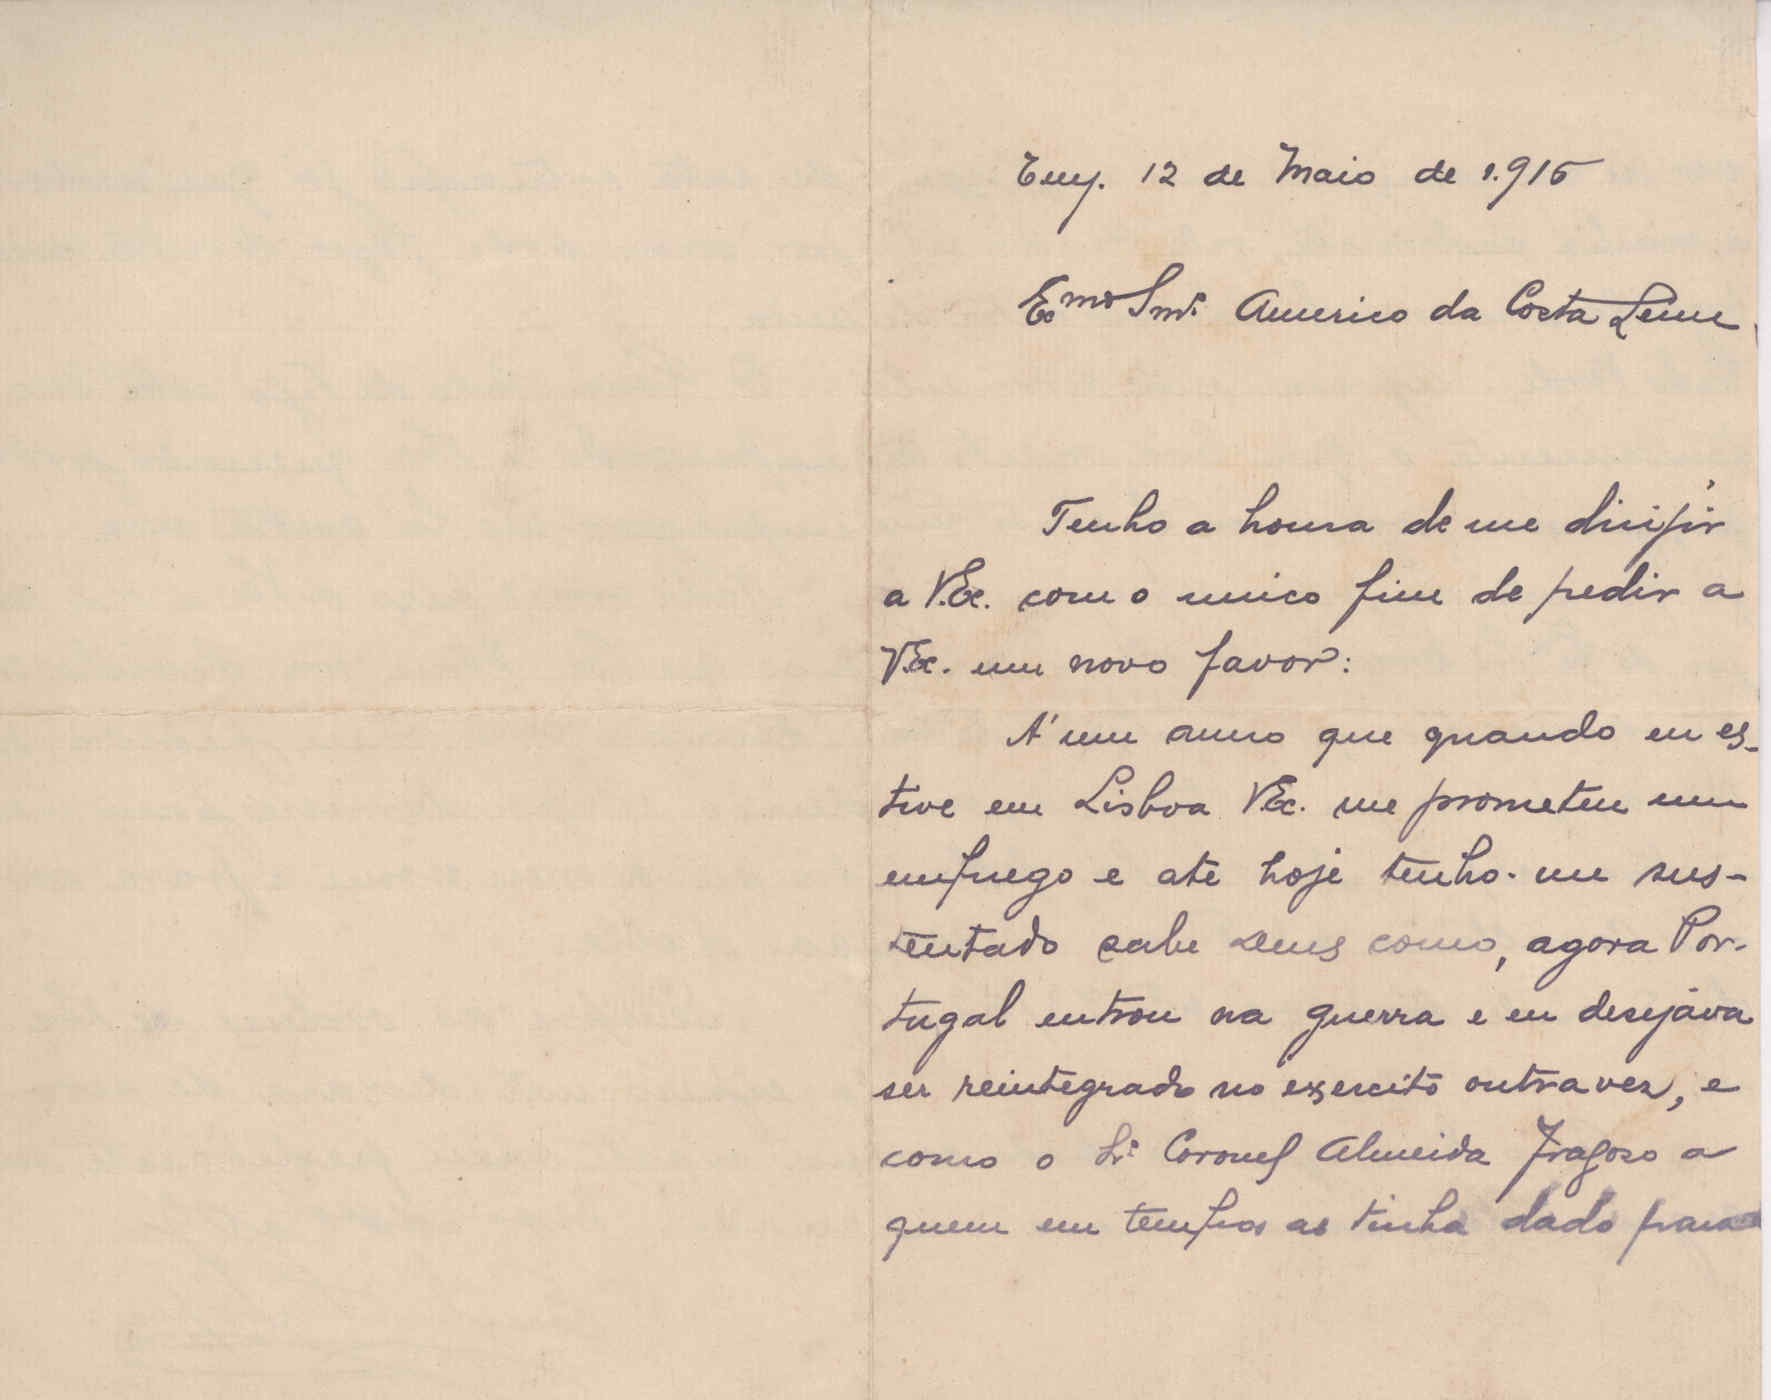 Tuy. 12 de Maio de 1.916
Exmo Snr. Americo da Costa Leme
Tenho a honra de me dirijir
a V.Ex. com o unico fim de pedir a
V.Ex. um novo favor:
A' um anno que quando eu es-
tive em Lisboa V.Ex. me prometeu um
emprego e até hoje tenho-me sus-
tentado sabe Deus como, agora Por-
tugal entrou na guerra e eu desejáva
ser reintegrado no exercito outra vez, e
como o Sr. Coronel Almeida Fragoso a
quem em tempos as tinha dado para